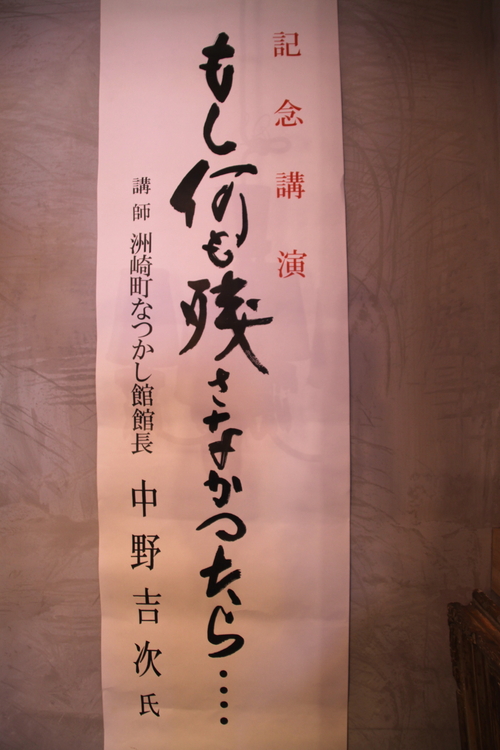 記念講演
もし何も残さなかったら‥‥
講師 洲崎町なつかし館館長 中野吉次氏